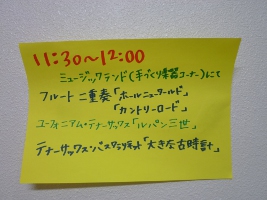 11:30〜12:00
ミュージックランド(手づくり楽器コーナー)にて
フルート二重奏「ホールニューワールド」
「カントリーロード」
ユーフォニアム・テナーサックス「ルパン三世」
テナーサックス・バスクラリネット「大きな古時計」